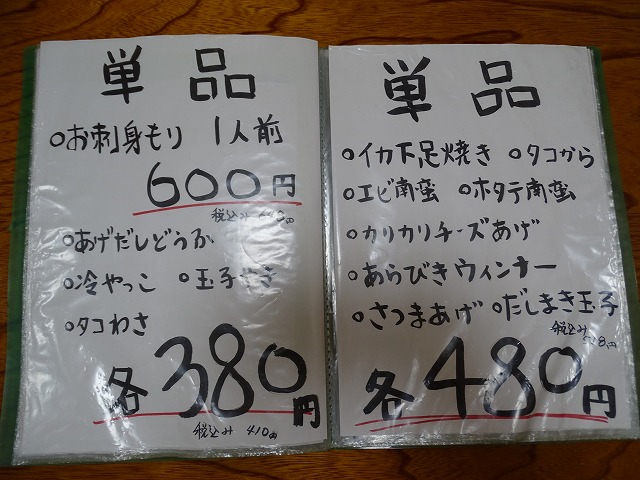 単品
○お刺身もり 1人前
600円
税込み
○あげだしどうふ
○冷やっこ ○玉子やき
○タコわさ
各380円
税込み 410円
単品
○イカ下足焼き ○タコから
○エビ南蛮 ○ホタテ南蛮
○カリカリチーズあげ
○あらびきウィンナー
○さつまあげ ○だしまき玉子
税込み
各480円